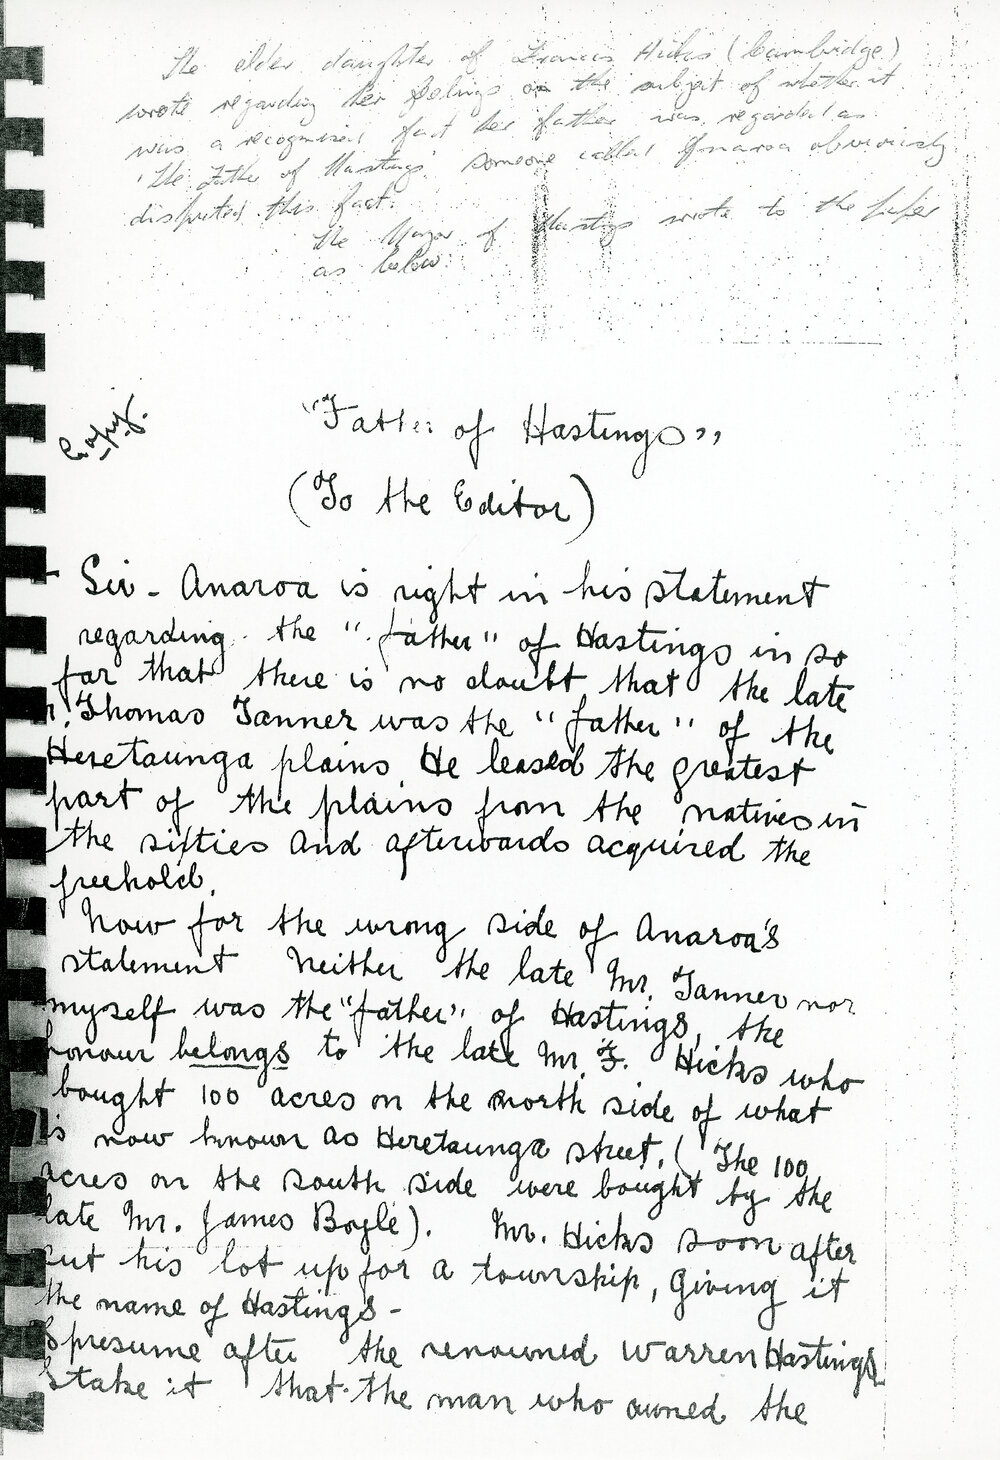 The elder daughter of Francis Hicks (Cambridge)
wrote regarding her feelings on the subject of whether it
was a recognised fact her father was regarded as
'The Father of Hastings' someone called Anaroa obviously
disputed this fact.
The Mayor of Hastings wrote to the paper
as below:
Copy.
"Father of Hastings"
(To the Editor)
Sir - Anaroa is right in his statement
regarding the "father" of Hastings in so
far that there is no doubt that the late
Thomas Tanner was the "father" of the
Heretaunga plains. He leased the greatest
part of the plains from the natives in
the sixties and afterwards acquired the
freehold.
Now for the wrong side of Anaroa's
statement Neither the late Mr. Tanner nor
myself was the "father" of Hastings, the
honour belongs to the late Mr. F. Hicks who
bought 100 acres on the north side of what
is now known as Heretaunga street. (The 100
acres on the south side were bought by the
late Mr. James Boyle). Mr. Hicks soon after
cut his lot up for a township, giving it
the name of Hastings -
I presume after the renowned Warren Hastings
I take it that the man who owned the